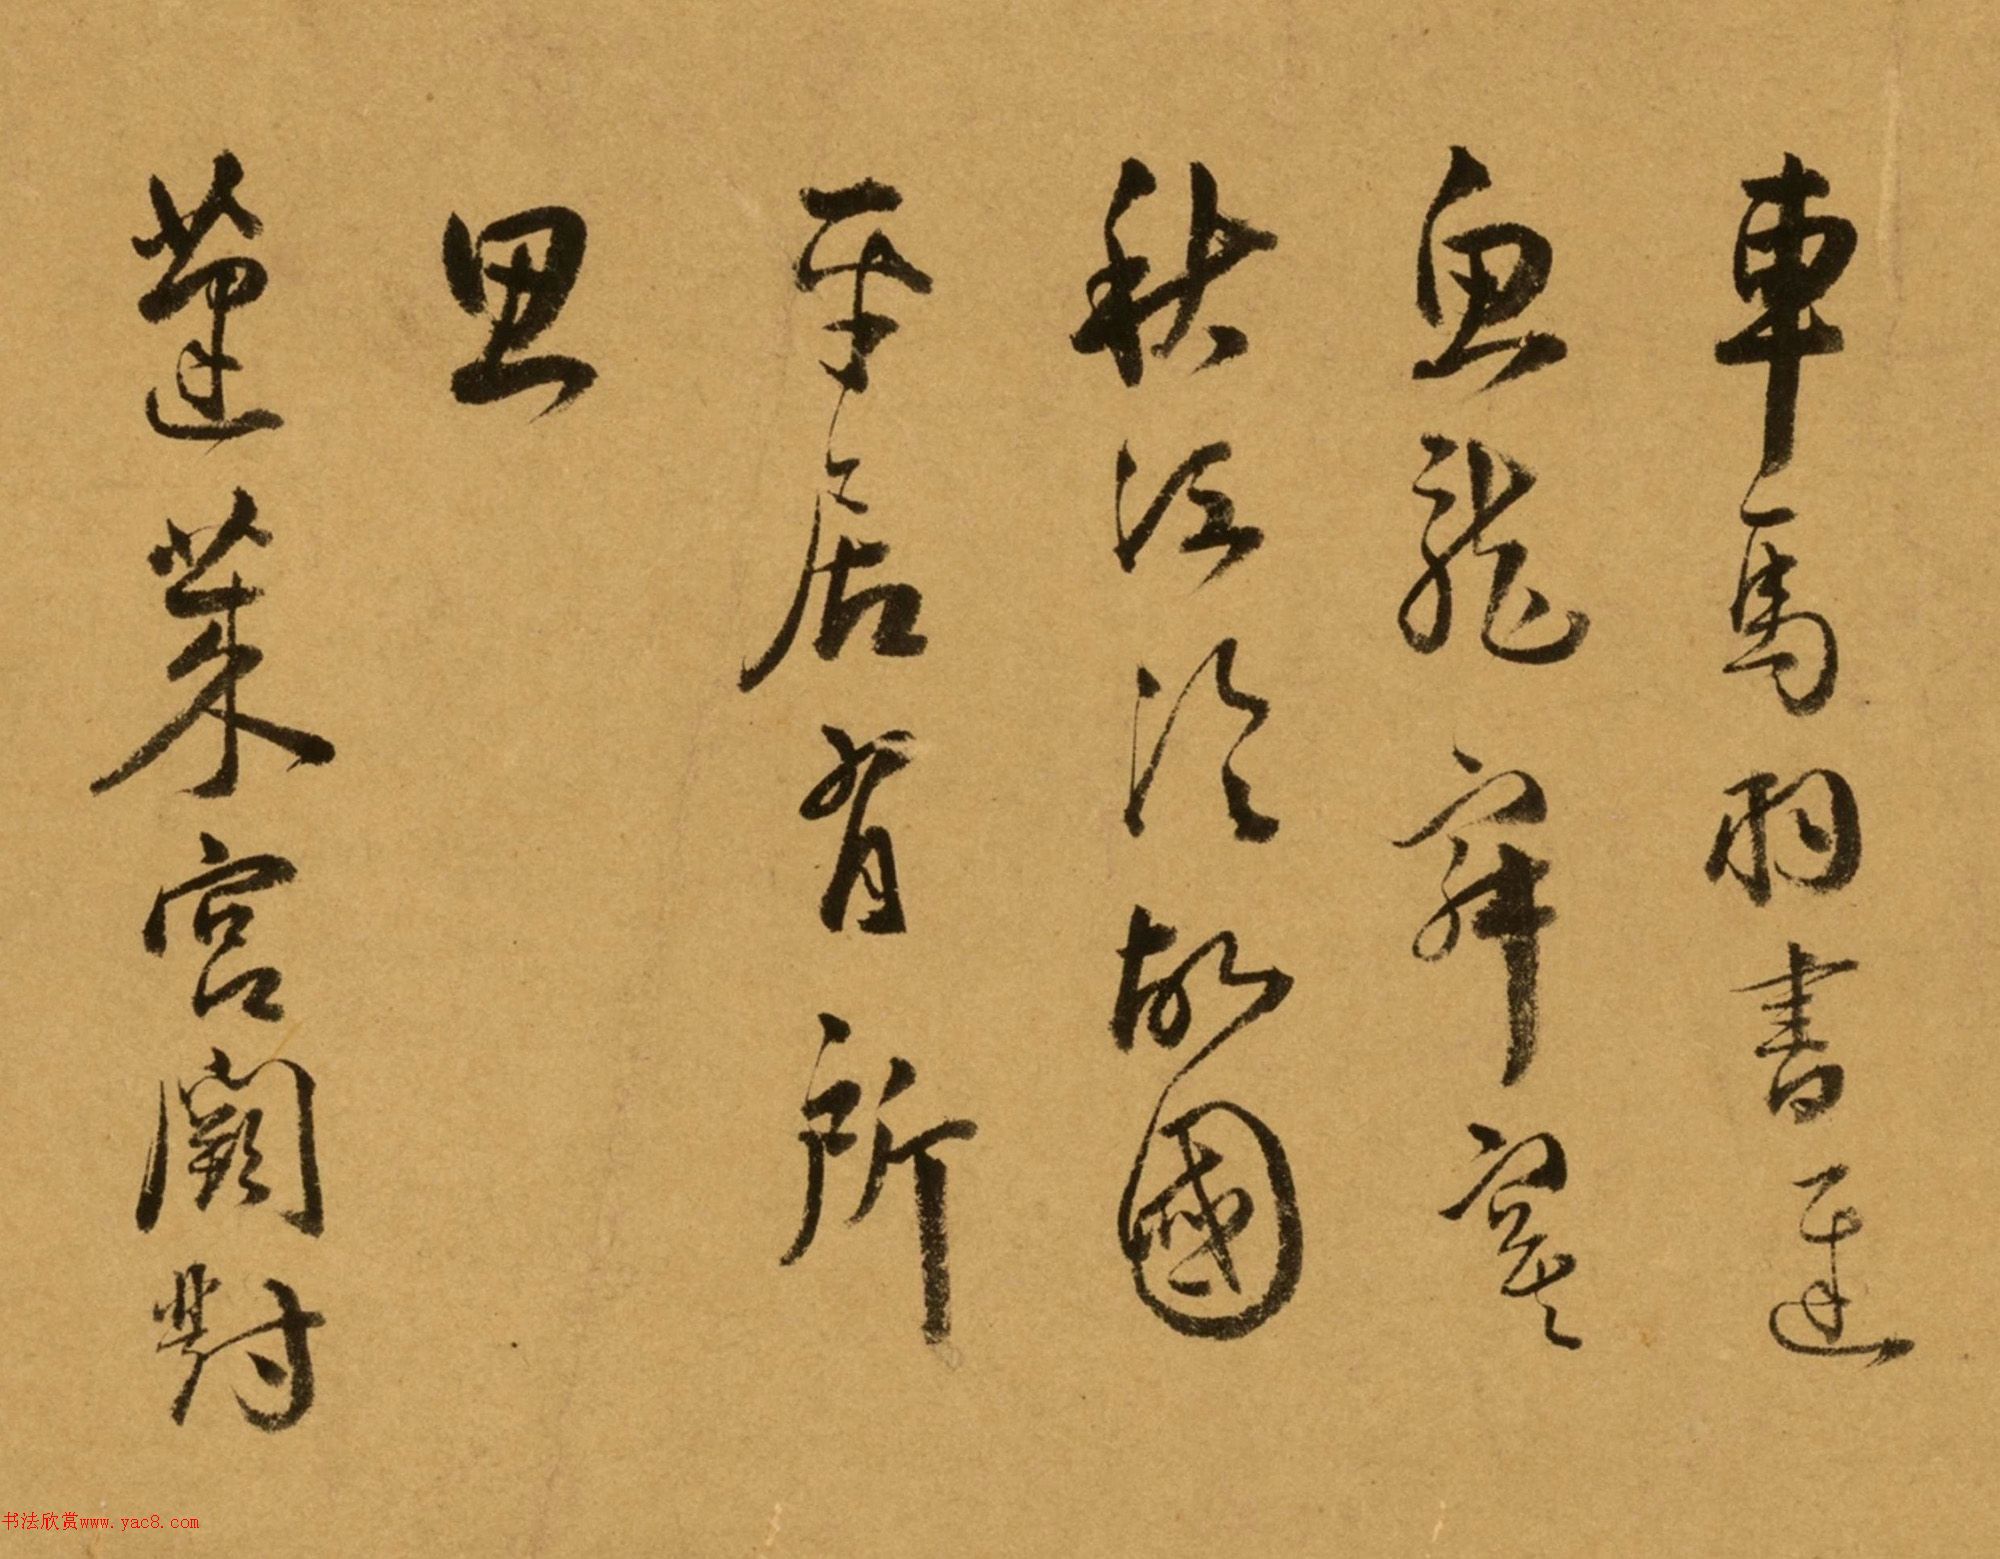 車馬羽書遲
魚龍寂寞
秋江冷故國
平居有所
思
蓬萊宮闕對
书法欣赏www.yac8.com